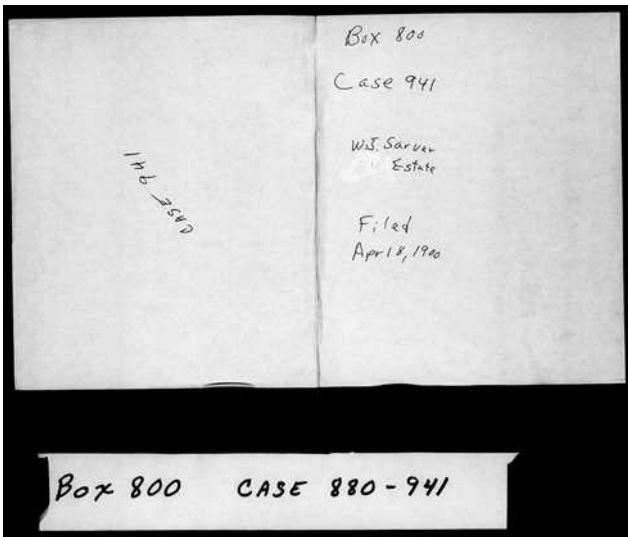 CASE 941
Box 800
Case 941
W.J. Sarver
Estate
Filed
Apr 18, 1900
Box 800 CASE 880-941